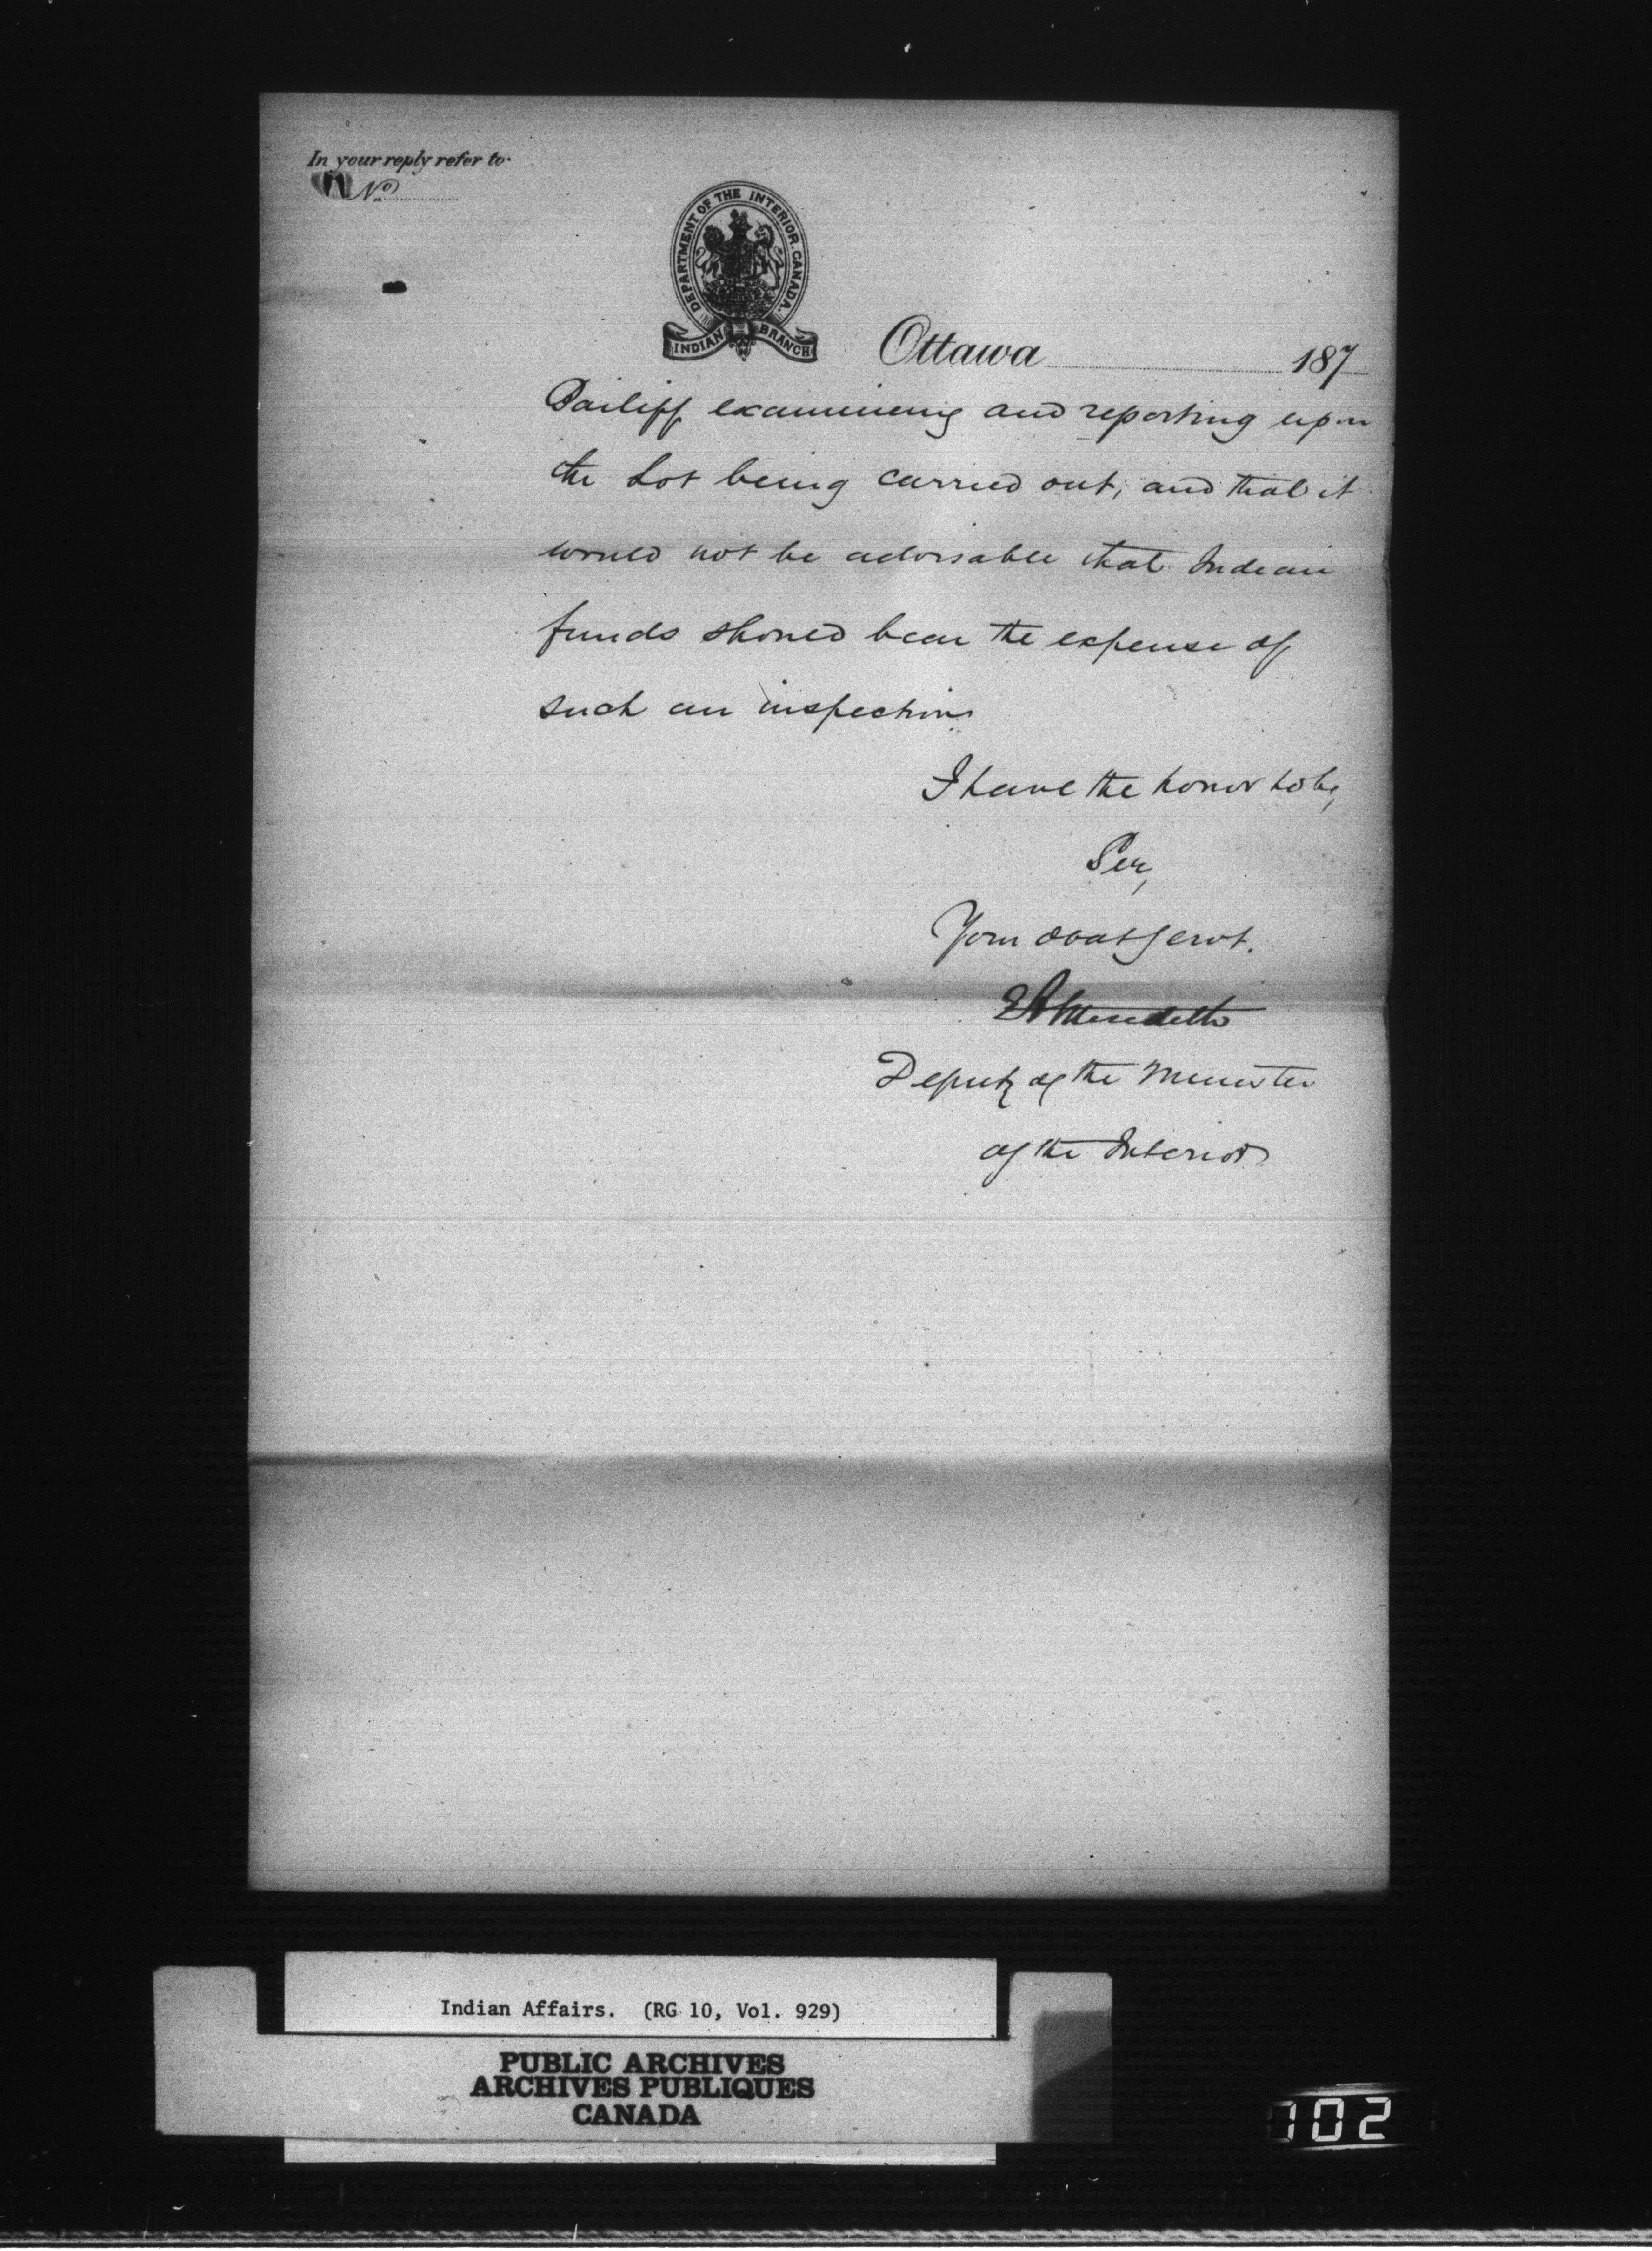 In your reply refer to
No
DEPARTMENT OF THE INTERIOR. CANADA.
INDIAN BRANCH
Ottawa 187
Bailiff examining and reporting upon
the Lot being carried out, and that it
would not be advisable that Indian
funds should bear the expense of
such an inspection
I have the honor to be,
Sir,
Your obdt servt.
E A Meredith
Deputy of the Minister
of the Interior
Indian Affairs. (RG 10, Vol. 929)
PUBLIC ARCHIVES
ARCHIVES PUBLIQUES
CANADA
102